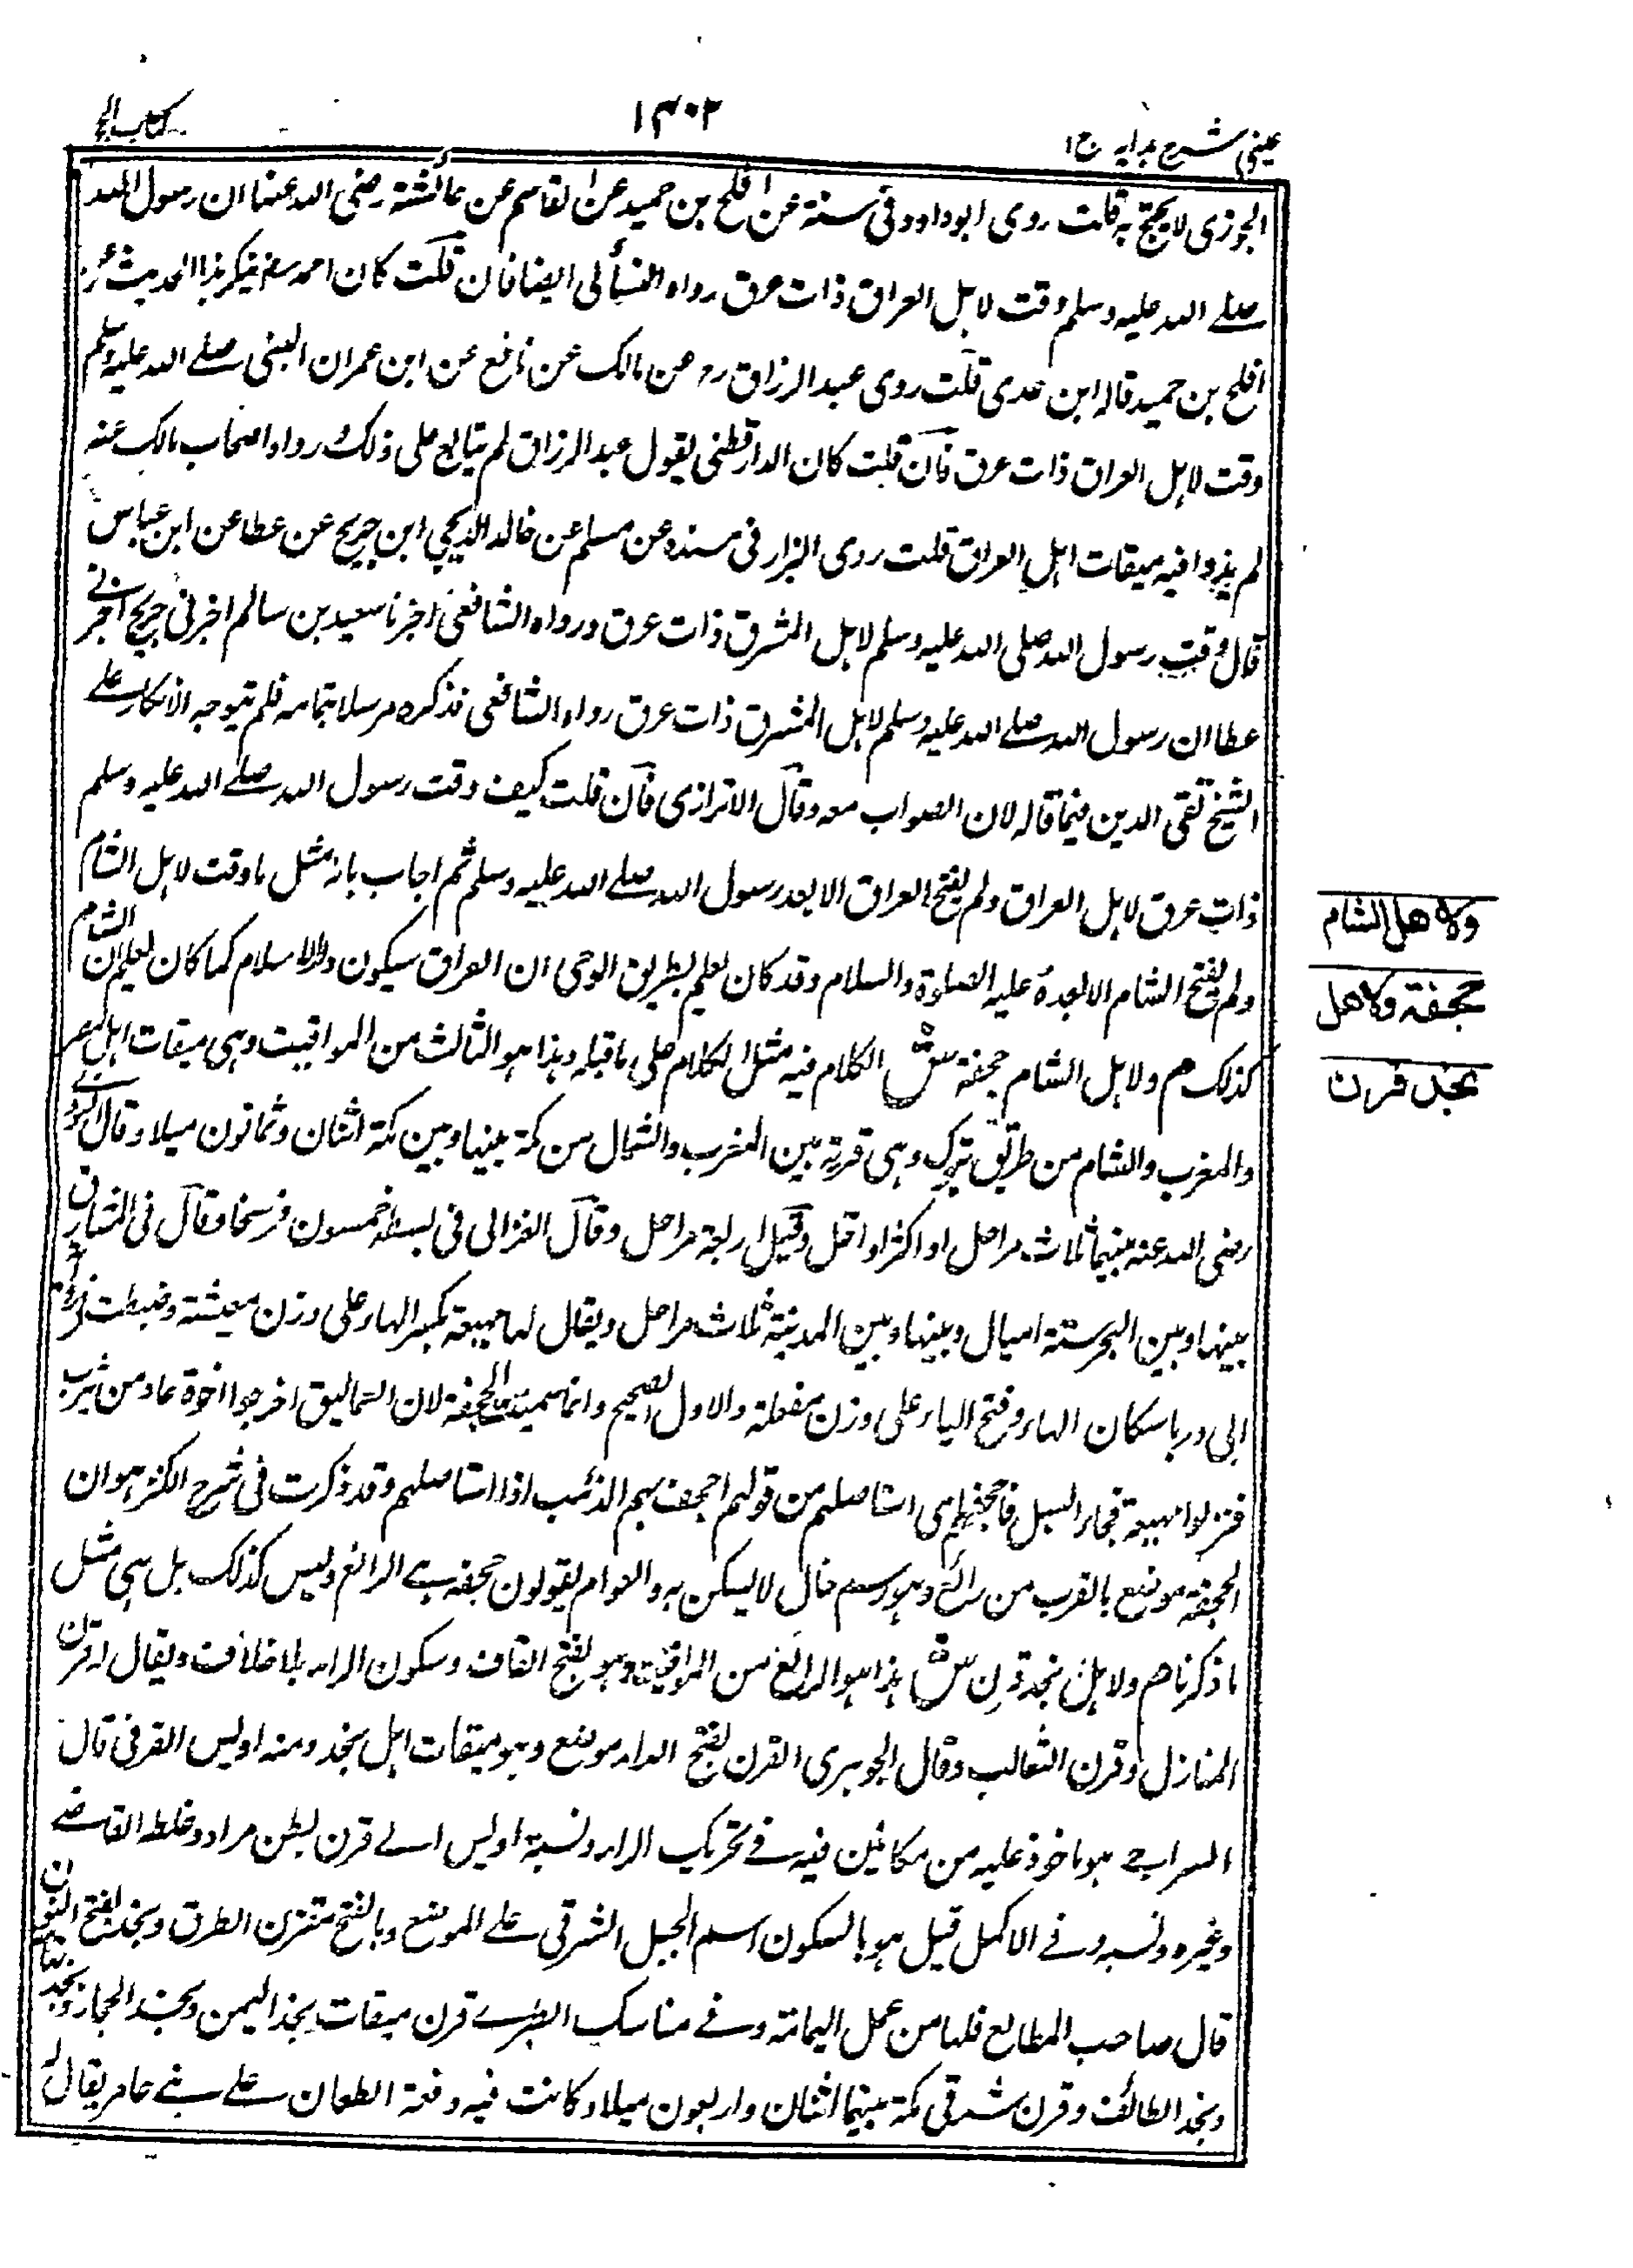 عيني شرح هدايه ج ١
١٣٠٢
كتاب الحج
الجوزى لا يحتج به قلت روى ابو داود فى سننه عن افلح بن حميد عن القاسم عن عائشة رضى الله عنها ان رسول الله
صلے الله عليه وسلم وقت لاهل العراق ذات عرق رواه النسائى ايضا فان قلت كان احمد بن ينكر هذا الحديث على
افلح بن حميد قاله ابن عدى قلت روى عبد الرزاق رح عن مالك عن نافع عن ابن عمر ان النبى صلے الله عليه وسلم
وقت لاهل العراق ذات عرق فان قلت كان الدارقطنى يقول عبد الرزاق لم يتابع على ذلك ورواه اصحاب مالك عنه
لم يذكروا فيه ميقات اهل العراق قلت روى البزار فى مسنده عن مسلم عن خالد الزنجى ابن جريج عن عطا عن ابن عباس
قال وقت رسول الله صلى الله عليه وسلم لاهل المشرق ذات عرق ورواه الشافعى اخبرنا سعيد بن سالم اخبرنى جريج اخبرنى
عطا ان رسول الله صلے الله عليه وسلم لاهل المشرق ذات عرق رواه الشافعى فذكره مرسلا بتمامه فلم يتوجه الانكار على
الشيخ تقى الدين فيما قاله لان الصواب معه وقال الاترازى فان قلت كيف وقت رسول الله صلے الله عليه وسلم
ذات عرق لاهل العراق ولم يفتح العراق الا بعد رسول الله صلے الله عليه وسلم ثم اجاب بانه مثل ما وقت لاهل الشام
ولم يفتح الشام الا بعده عليه الصلوة والسلام وقد كان يعلم بطريق الوحى ان العراق سيكون دار الاسلام كما كان يعلم ان الشام
كذلك م ولاهل الشام جحفة ش الكلام فيه مثل الكلام على ما قبله وهذا هو الثالث من المواقيت وهى ميقات اهل مصر
والمغرب والشام من طريق تبوك وهى قرية بين المغرب والشمال من مكة بينها وبين مكة اثنان وثمانون ميلا وقال النووى
رضى الله عنه بينهما ثلاث مراحل او اكثر او اقل وقيل اربعة مراحل وقال الغزالى فى بسيطه خمسون فرسخا وقال فى
بينها وبين البحر ستة اميال وبينها وبين المدينة ثلاث مراحل ويقال لها مهيعة بكسر الهاء على وزن معيشة وضبطت
ابى ذر باسكان الهاء وفتح الياء على وزن مفعلة والاول الصحيح وانما سميت الجحفة لان العماليق اخرجوا اخوة عاد من يثرب
فنزلوا مهيعة فجاء السيل فاجحفهم اى استاصلهم من قولهم اجحف بهم الذئب اذا استاصلهم وقد ذكرت فى شرح الكنز هو ان
الجحفة موضع بالقرب من رابغ وهو رسم خال لا يسكن به والعوام يقولون جحفة هے الرابغ وليس كذلك بل هى مثل
ما ذكرنا م ولاهل نجد قرن ش هذا هو الرابع من المواقيت وهو بفتح القاف وسكون الراء بلا خلاف ويقال له قرن
المنازل وقرن الثعالب وقال الجوهرى القرن بفتح الراء موضع وهو ميقات اهل نجد ومنه اويس القرنى قال
السراجے هو ماخوذ عليه من مكانين فيه فے تحريك الراء ونسبة اويس الے قرن بطن مراد وغلطه القاضے
وغيره ونسبه وفے الاكمل قيل هو بالسكون اسم الجبل الشرقى علے الموضع وبالفتح مفترق الطرق ونجد بفتح النون
قال صاحب المطالع فلها من عمل اليمامة وفے مناسك الطبرے قرن ميقات نجد اليمن ونجد الحجاز ونجد تهامة
ونجد الطائف وقرن شرقى مكة بينهما اثنان واربعون ميلا وكانت فيه وقعة الطعان علے بنے عامر يقال له
ولاهل الشام
جحفة ولاهل
نجد قرن